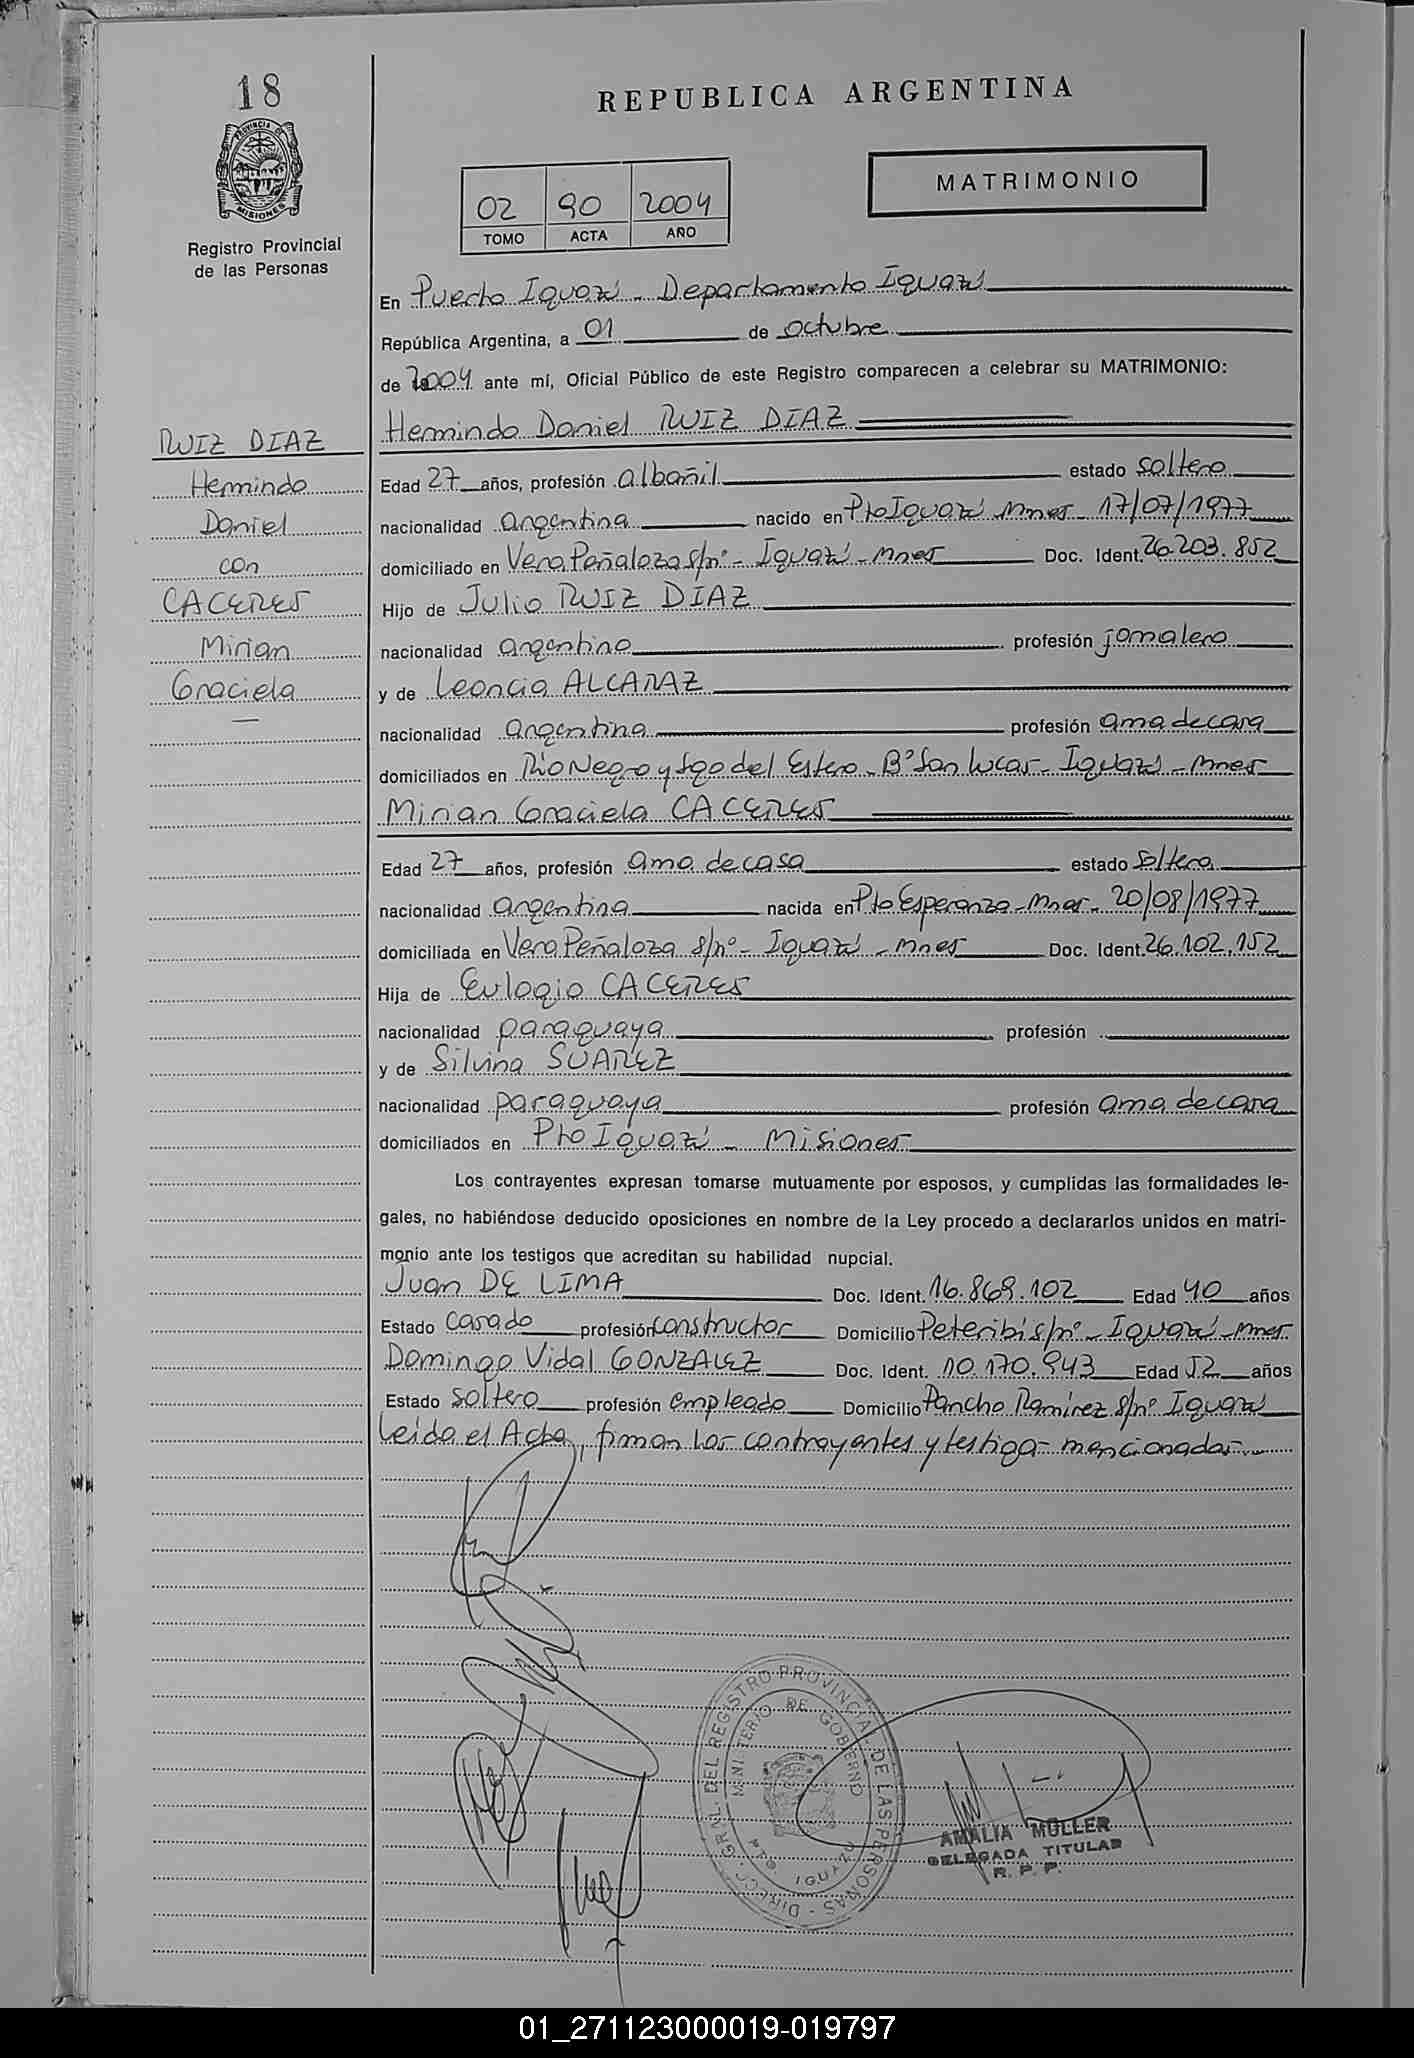 18
REPUBLICA ARGENTINA
PROVINCIA DE
MISIONES
Registro Provincial
de las Personas
MATRIMONIO
02 90 2004
TOMO ACTA AÑO
En Puerto Iguazú - Departamento Iguazú
República Argentina, a 01 de octubre
de 2004 ante mí, Oficial Público de este Registro comparecen a celebrar su MATRIMONIO:
RUIZ DIAZ
Hermindo
Daniel
con
CACERES
Mirian
Graciela
Hermindo Daniel RUIZ DIAZ
Edad 27 años, profesión albañil estado soltero
nacionalidad argentina nacido en Pto Iguazú Mnes - 17/07/1977
domiciliado en Vera Peñaloza s/nº - Iguazú - Mnes Doc. Ident. 26.203.852
Hijo de Julio RUIZ DIAZ
nacionalidad argentino profesión jornalero
y de Leoncia ALCARAZ
nacionalidad argentina profesión ama de casa
domiciliados en Rio Negro y Sgo del Estero - Bº San Lucas - Iguazú - Mnes
Mirian Graciela CACERES
Edad 27 años, profesión ama de casa estado soltera
nacionalidad argentina nacida en Pto Esperanza - Mnes - 20/08/1977
domiciliada en Vera Peñaloza s/nº - Iguazú - Mnes Doc. Ident. 26.102.152
Hija de Eulogio CACERES
nacionalidad paraguaya profesión
y de Silvina SUAREZ
nacionalidad paraguaya profesión ama de casa
domiciliados en Pto Iguazú - Misiones
Los contrayentes expresan tomarse mutuamente por esposos, y cumplidas las formalidades le-
gales, no habiéndose deducido oposiciones en nombre de la Ley procedo a declararlos unidos en matri-
monio ante los testigos que acreditan su habilidad nupcial.
Juan DE LIMA Doc. Ident. 16.869.102 Edad 40 años
Estado casado profesión constructor Domicilio Peteribi s/nº - Iguazú - Mnes
Domingo Vidal GONZALEZ Doc. Ident. 10.170.943 Edad 52 años
Estado soltero profesión empleado Domicilio Pancho Ramirez s/nº Iguazú
Leida el Acta, firman los contrayentes y testigos mencionados
DIRECC. GRAL. DEL REGISTRO PROVINCIAL DE LAS PERSONAS
MINISTERIO DE GOBIERNO
PTO. IGUAZU
AMALIA MULLER
DELEGADA TITULAR
R. P. P.
01_271123000019-019797